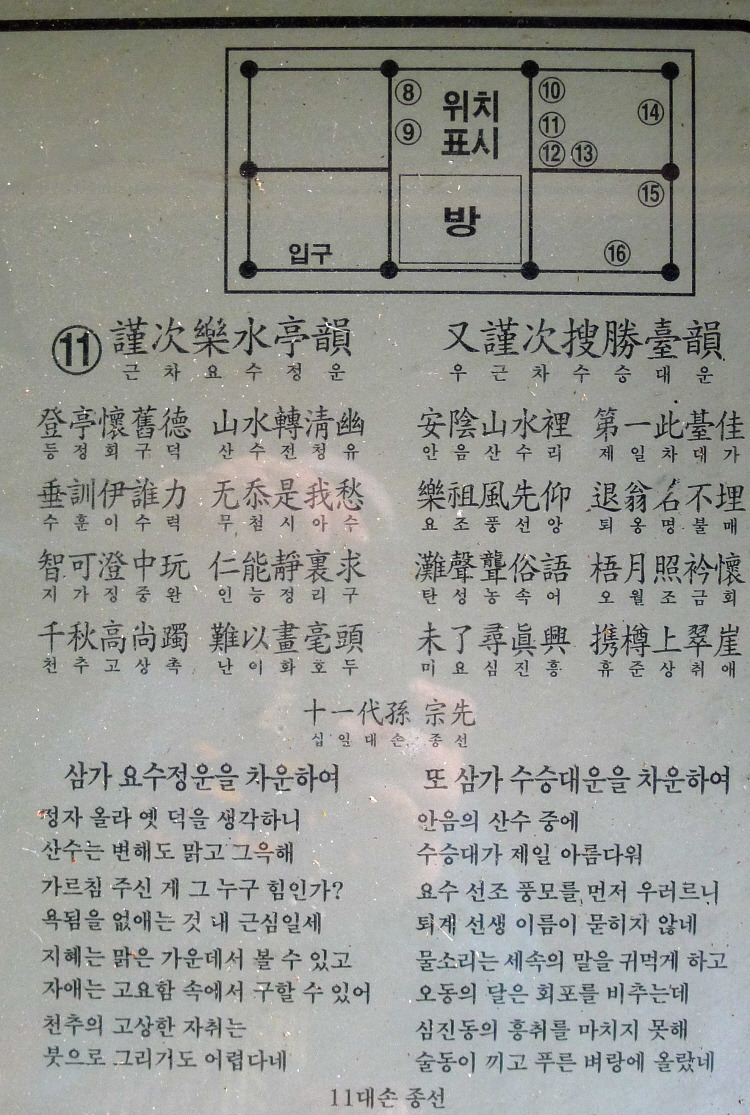 ⑧ 위치 ⑩
⑨ 표시 ⑪ ⑭
⑫ ⑬
방 ⑮
입구 ⑯
⑪ 謹次樂水亭韻
근차요수정운
登亭懷舊德 山水轉清幽
등정회구덕 산수전청유
垂訓伊誰力 无忝是我愁
수훈이수력 무첨시아수
智可澄中玩 仁能靜裏求
지가징중완 인능정리구
千秋高尚躅 難以畫毫頭
천추고상촉 난이화호두
又謹次搜勝臺韻
우근차수승대운
安陰山水裡 第一此臺佳
안음산수리 제일차대가
樂祖風先仰 退翁名不埋
요조풍선앙 퇴옹명불매
灘聲聾俗語 梧月照衿懷
탄성농속어 오월조금회
未了尋眞興 携樽上翠崖
미요심진흥 휴준상취애
十一代孫 宗先
십일대손 종선
삼가 요수정운을 차운하여
정자 올라 옛 덕을 생각하니
산수는 변해도 맑고 그윽해
가르침 주신 게 그 누구 힘인가?
욕됨을 없애는 것 내 근심일세
지혜는 맑은 가운데서 볼 수 있고
자애는 고요함 속에서 구할 수 있어
천추의 고상한 자취는
붓으로 그리기도 어렵다네
또 삼가 수승대운을 차운하여
안음의 산수 중에
수승대가 제일 아름다워
요수 선조 풍모를 먼저 우러르니
퇴계 선생 이름이 묻히지 않네
물소리는 세속의 말을 귀먹게 하고
오동의 달은 회포를 비추는데
심진동의 흥취를 마치지 못해
술동이 끼고 푸른 벼랑에 올랐네
11대손 종선